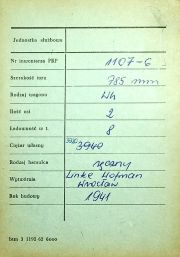 Jednostka służbowa
Nr inwentarza PKP 1107-6
Szerokość toru 785 mm
Rodzaj wagonu Wh
Ilość osi 2
Ładowność w t. 8
Ciężar własny 3940
Rodzaj hamulca ręczny
Wytwórnia Linke Hofman
Wrocław
Rok budowy 1941